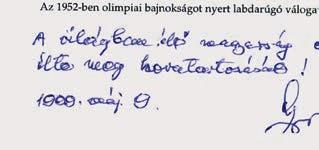 Az 1952-ben olimpiai bajnokságot nyert labdarúgó váloga
A világban élő magyarság
meg hovatartozását !
1999. máj. 9.